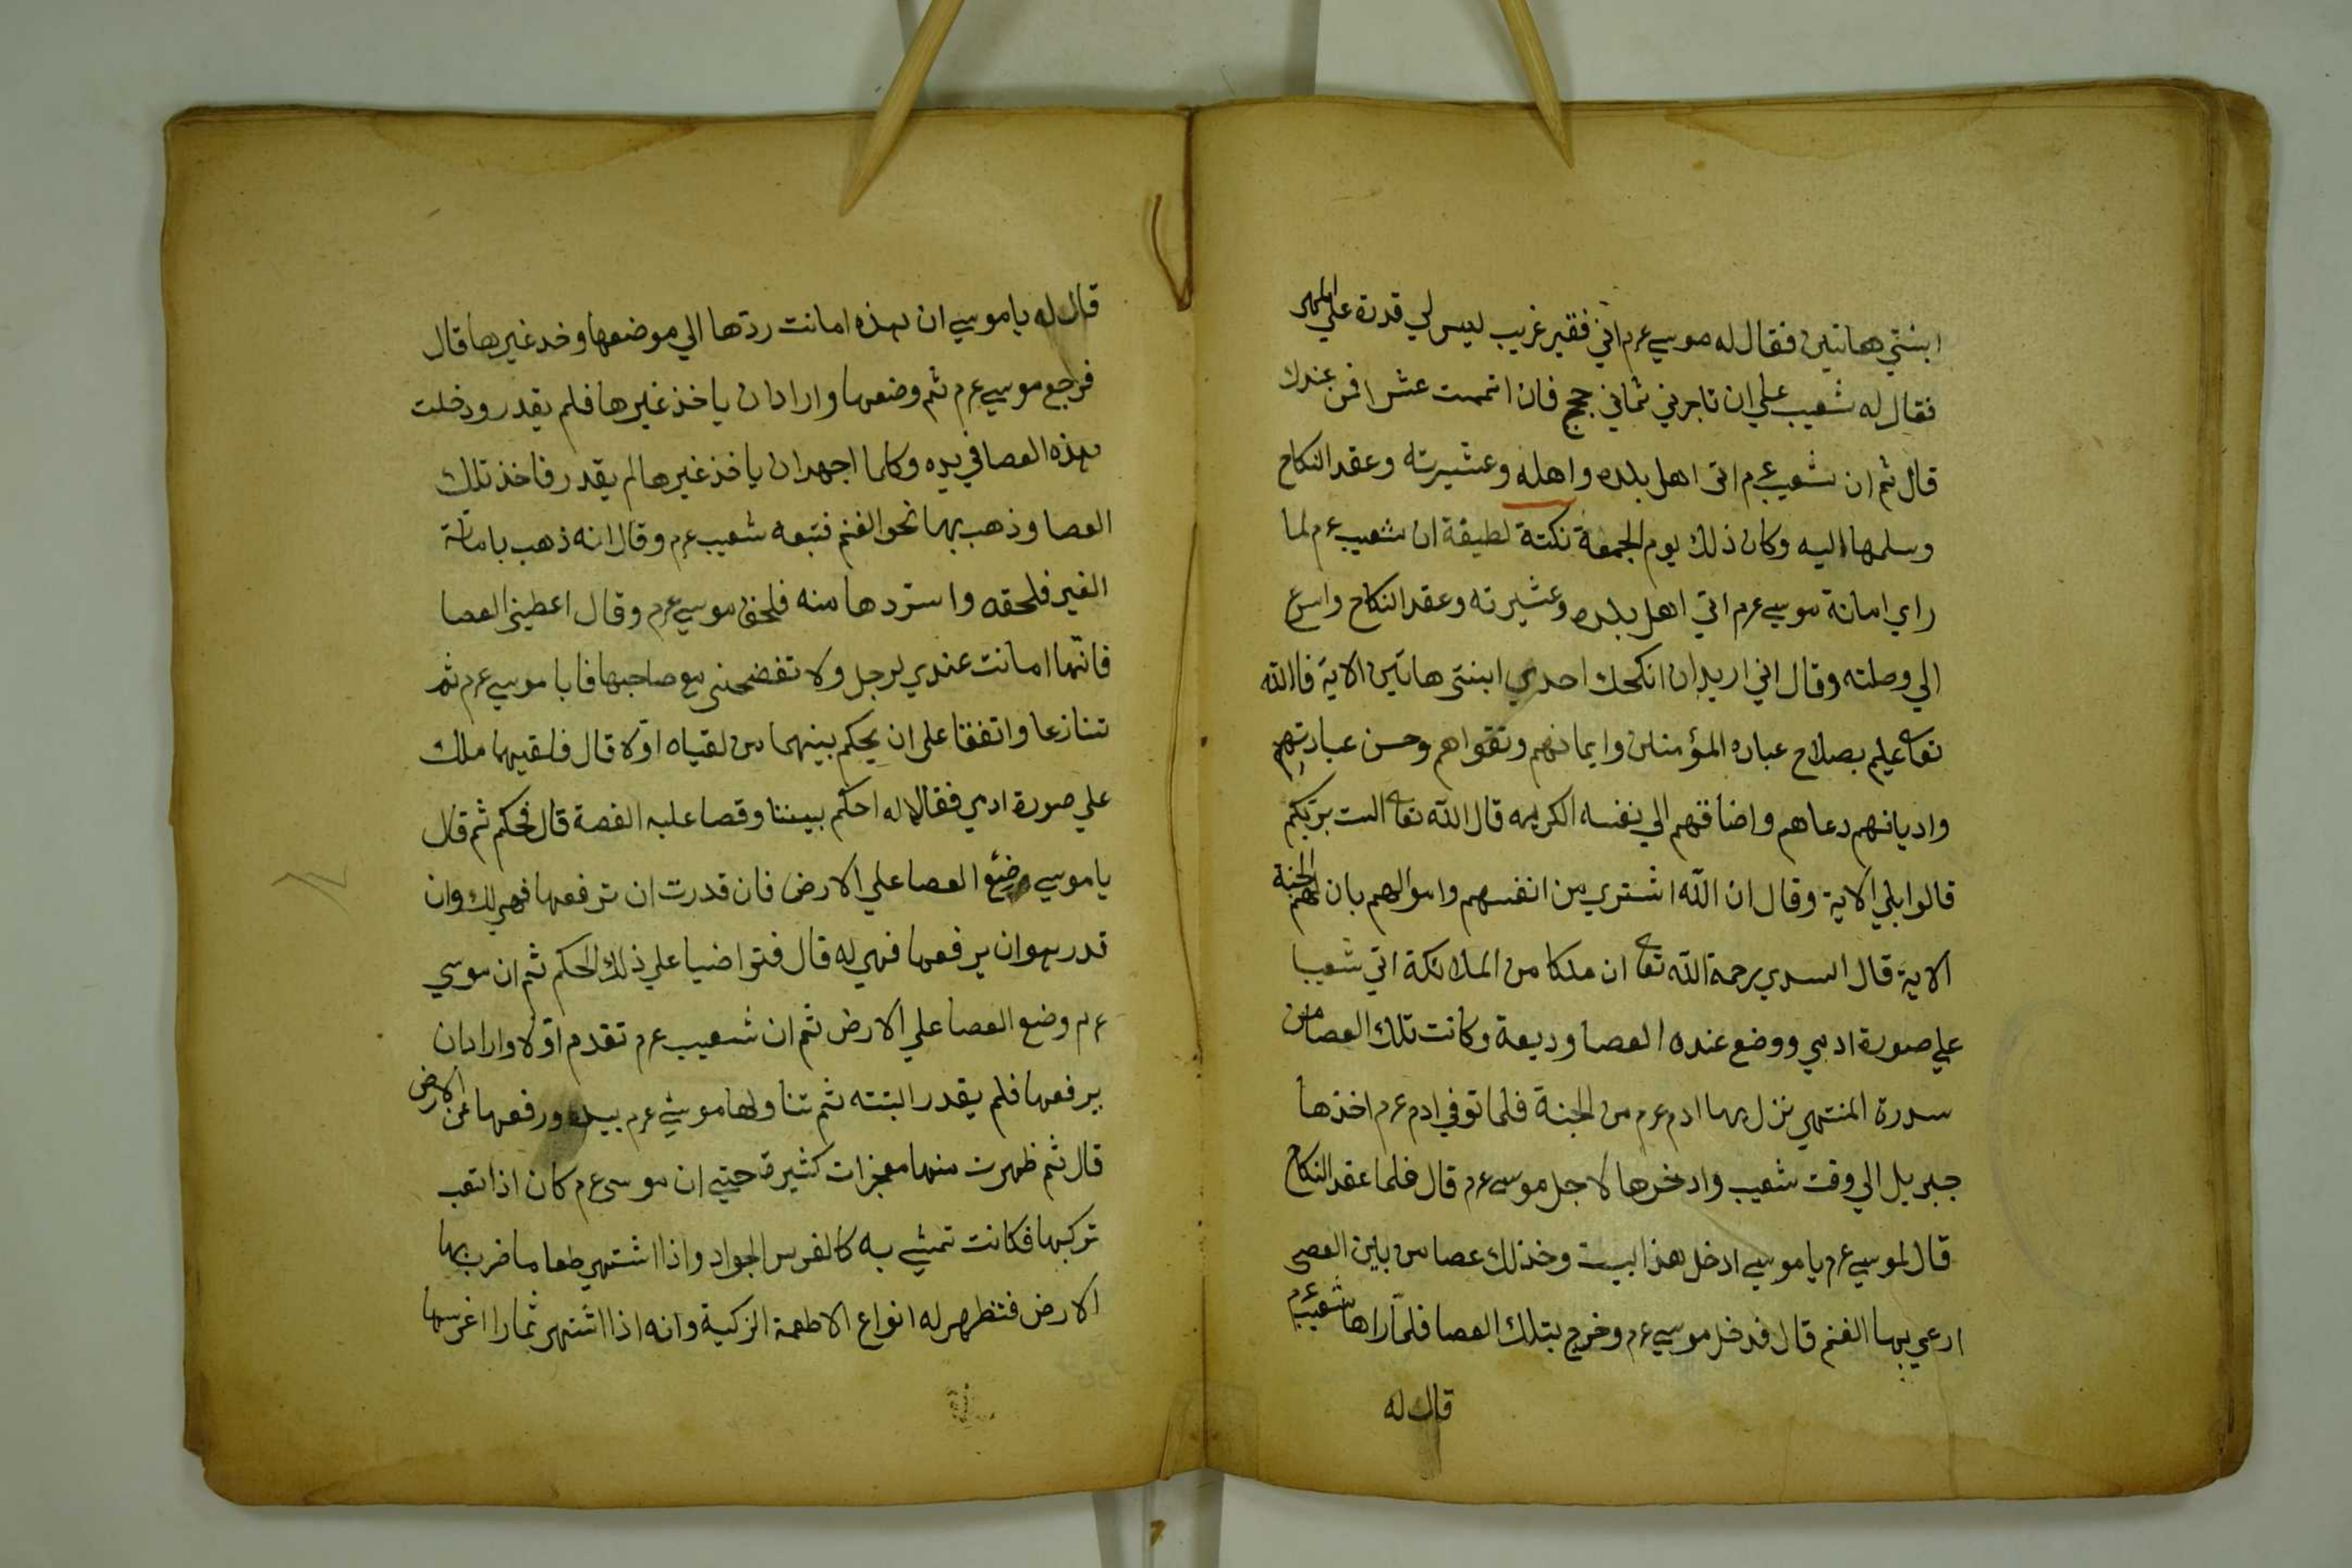 ابنتي هاتين فقال له موسي عم اني فقير غريب ليس لي قدرة علي المهر
فقال له شعيب علي ان تاجرني ثماني حجج فان اتممت عشرا فمن عندك
قال ثم ان شعيب عم اتى اهل بلده واهله وعشيرته وعقد النكاح
وسلمها اليه وكان ذلك يوم الجمعة نكتة لطيفة ان شعيب عم لما
راي امانة موسي عم اتي اهل بلده وعشيرته وعقد النكاح واسرع
الي وصلته وقال اني اريد ان انكحك احدي ابنتي هاتين الاية فالله
تعا عليم بصلاح عباده المؤمنين وايمانهم وتقواهم وحسن عبادتهم
واديانهم دعاهم واضافهم الي نفسه الكريمه قال الله تعا الست بربكم
قالوا بلي الاية وقال ان الله اشتري من انفسهم واموالهم بان لهم الجنة
الاية قال السدي رحمة الله تعا ان ملكا من الملائكة اتي شعيبا
علي صورة ادمي ووضع عنده العصا وديعة وكانت تلك العصا من
سدرة المنتهي نزل بها ادم عم من الجنة فلما توفي ادم عم اخذها
جبريل الي وقت شعيب وادخرها لاجل موسي عم قال فلما عقد النكاح
قال لموسي عم يا موسي ادخل هذا البيت وخذلك عصا من باين العصي
ارعي بها الغنم قال فدخل موسي عم وخرج بتلك العصا فلما راها شعيب عم
قال له
قال له يا موسي ان هذه امانت ردتها الي موضعها وخد غيرها قال
فرجع موسي عم ثم وضعها واراد ان ياخذ غيرها فلم يقدر ودخلت
هذه العصا في يده وكلما اجهد ان ياخذ غيرها لم يقدر فاخذ تلك
العصا وذهب بها نحو الغنم فتبعه شعيب عم وقال انه ذهب بامانة
الغير فلحقه واستردها منه فلحق موسي عم وقال اعطيني العصا
فانها امانت عندي لرجل ولا تفضحني مع صاحبها فابا موسي عم ثم
تنازعا واتفقا علي ان يحكم بينهما من لقياه اولا قال فلقيهما ملك
علي صورة ادمي فقالا له احكم بيننا وقصا عليه القصة قال فحكم ثم قال
يا موسي ضع العصا علي الارض فان قدرت ان ترفعها فهي لك وان
قدر هو ان يرفعها فهي له قال فتراضيا علي ذلك الحكم ثم ان موسي
عم وضع العصا علي الارض ثم ان شعيب عم تقدم اولا واراد ان
يرفعها فلم يقدر البتته ثم تناولها موسي عم بيده ورفعها عن الارض
قال ثم ظهرت منها معجزات كثيرة حتي ان موسى عم كان اذا تعب
تركبها فكانت تمشي به كالفرس الجواد واذا اشتهي طعاما ضرب بها
الارض فتظهر له انواع الاطعمة الزكية وانه اذا اشتهي ثمارا اغرسها